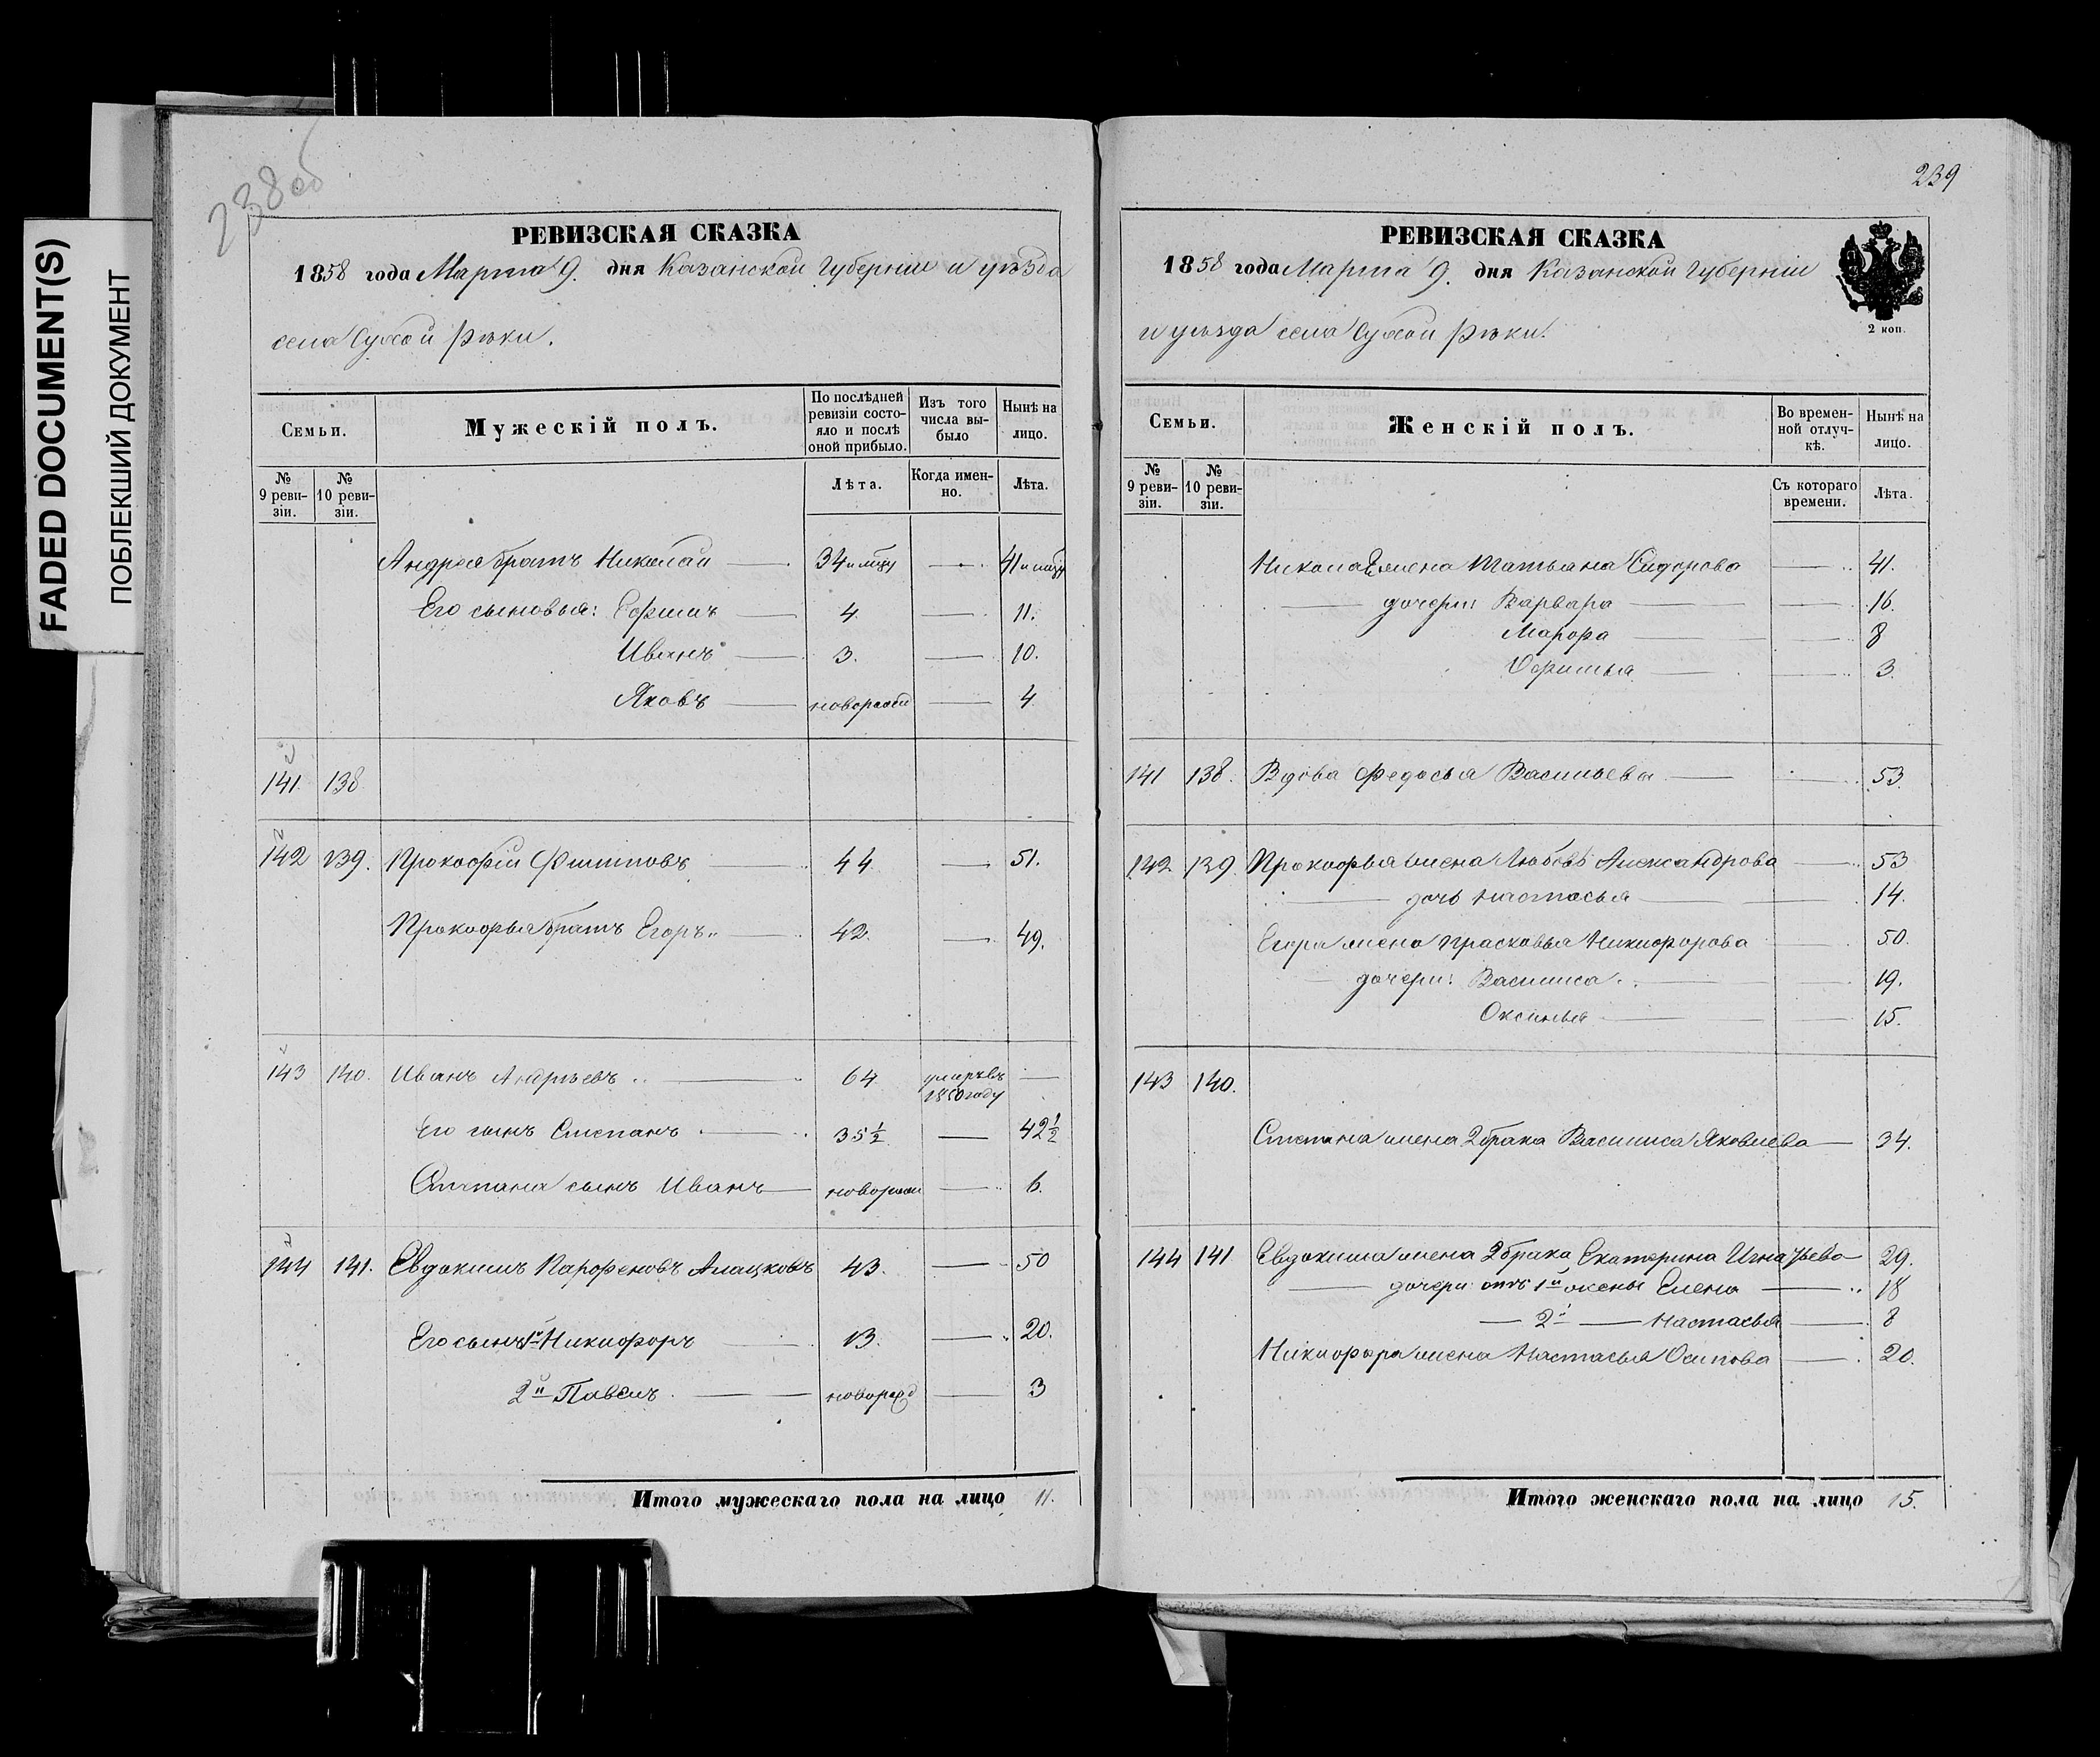 FADED DOCUMENT(S)
ПОБЛЕКШИЙ ДОКУМЕНТ
238 об
РЕВИЗСКАЯ СКАЗКА
1858 года Марта 9. дня Казанской Губерніи и уѣзда
села Сухой Рѣки.
Семьи. Мужескій полъ. По послѣдней ревизіи состояло и послѣ оной прибыло. Изъ того числа выбыло Нынѣ на лицо.
№ 9 ревизіи. № 10 ревизіи. Лѣта. Когда именно. Лѣта.
Андрея братъ Николай 34 41
Его сыновья: Ефимъ 4. 11.
Иванъ 3. 10.
Яковъ 4
141. 138
142 139. Прокофій Филиповъ 44 51.
Прокофья братъ Егоръ 42. 49.
143 140. Иванъ Андреевъ 64 умеръ въ 1850 году
Его сынъ Степанъ 35½ 42½
Степана сынъ Иванъ 6.
144 141. Евдокимъ Парфеновъ 43. 50
Его сынъ 1й Никифоръ 13. 20.
2й Павелъ новорожд 3
Итого мужескаго пола на лицо 11.
239
РЕВИЗСКАЯ СКАЗКА
1858 года Марта 9. дня Казанской Губерніи
и уѣзда села Сухой Рѣки.
2 коп.
Семьи. Женскій полъ. Во временной отлучкѣ. Нынѣ на лицо.
№ 9 ревизіи. № 10 ревизіи. Съ котораго времени. Лѣта.
Николая жена Татьяна Сидорова 41.
дочери: Варвара 16.
Марфа 8
3.
141 138. Вдова Федосья Васильева 53.
142 139. Прокофья жена Любовь Александрова 53
дочь Настасья 14.
Егора жена Прасковья Никифорова 50.
дочери: Василиса 19.
Оксинья 15.
143 140.
Степана жена 2 брака Василиса Яковлева 34.
144 141 Евдокима жена 2 брака Екатерина Игнатьева 29.
дочери отъ 1й жены Елена 18
2й Настасья 8
Никифора жена Настасья Осипова 20.
Итого женскаго пола на лицо 15.